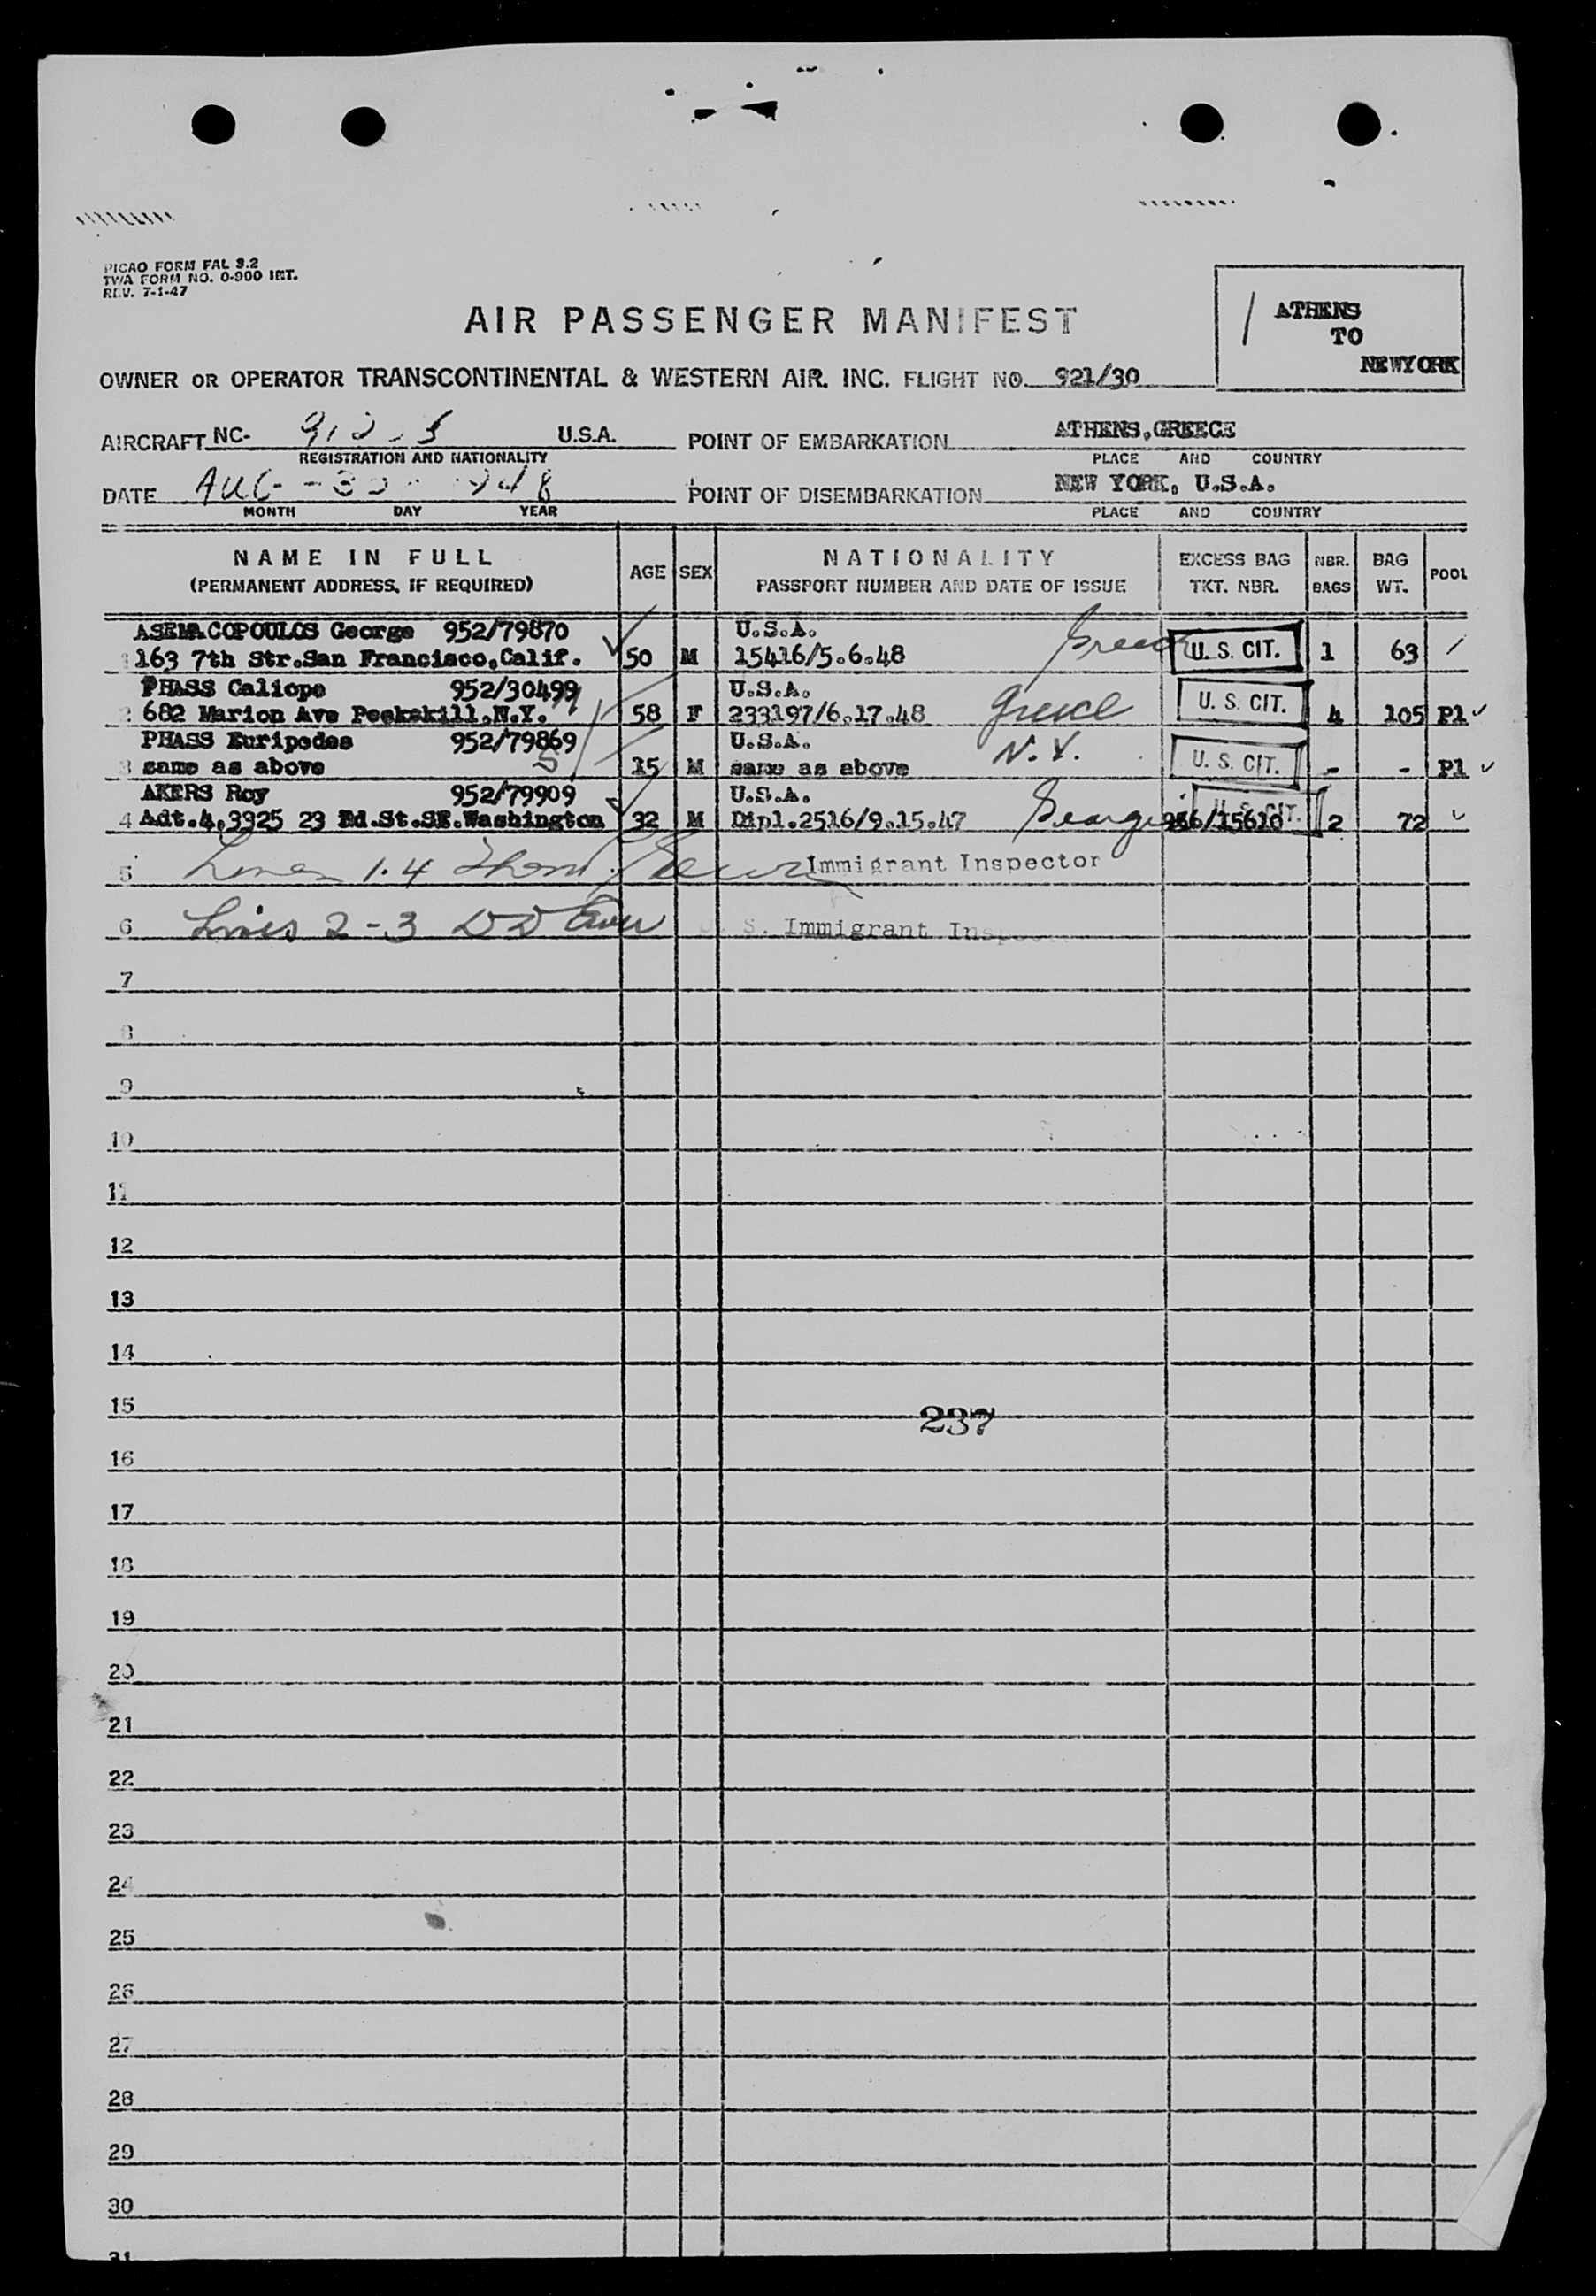 PICAO FORM FAL 3.2
TWA FORM NO. 0-900 INT.
REV. 7-1-47
AIR PASSENGER MANIFEST
ATHENS
TO
NEWYORK
OWNER OR OPERATOR TRANSCONTINENTAL & WESTERN AIR. INC. FLIGHT NO. 921/30
AIRCRAFT NC- U.S.A. POINT OF EMBARKATION ATHENS,GREECE
REGISTRATION AND NATIONALITY PLACE AND COUNTRY
DATE AUG - 30 1948 POINT OF DISEMBARKATION NEW YORK, U.S.A.
MONTH DAY YEAR PLACE AND COUNTRY
NAME IN FULL AGE SEX NATIONALITY EXCESS BAG NBR. BAG POOL
(PERMANENT ADDRESS, IF REQUIRED) PASSPORT NUMBER AND DATE OF ISSUE TKT. NBR. BAGS WT.
George 952/79870 U.S.A.
1 163 7th Str.San Francisco,Calif. 50 M 15416/5.6.48 Greece U. S. CIT. 1 63
PHASS Caliope 952/30499 U.S.A.
2 682 Marion Ave Peekskill,N.Y. 58 F 233197/6.17.48 Greece U. S. CIT. 4 105 Pl
PHASS Euripedes 952/79869 U.S.A.
3 same as above 15 M same as above N.Y. U. S. CIT. - - Pl
AKERS Roy 952/79909 U.S.A.
4 Adt.4,3325 23 Rd.St.SE.Washington 32 M Dipl.2516/9.15.47 Georgia 956/15610 U. S. CIT. 2 72
5 Lines 1.4 Immigrant Inspector
6 Lines 2-3 S. Immigrant Inspector
7
8
9
10
11
12
13
14
15
237
16
17
18
19
20
21
22
23
24
25
26
27
28
29
30
31